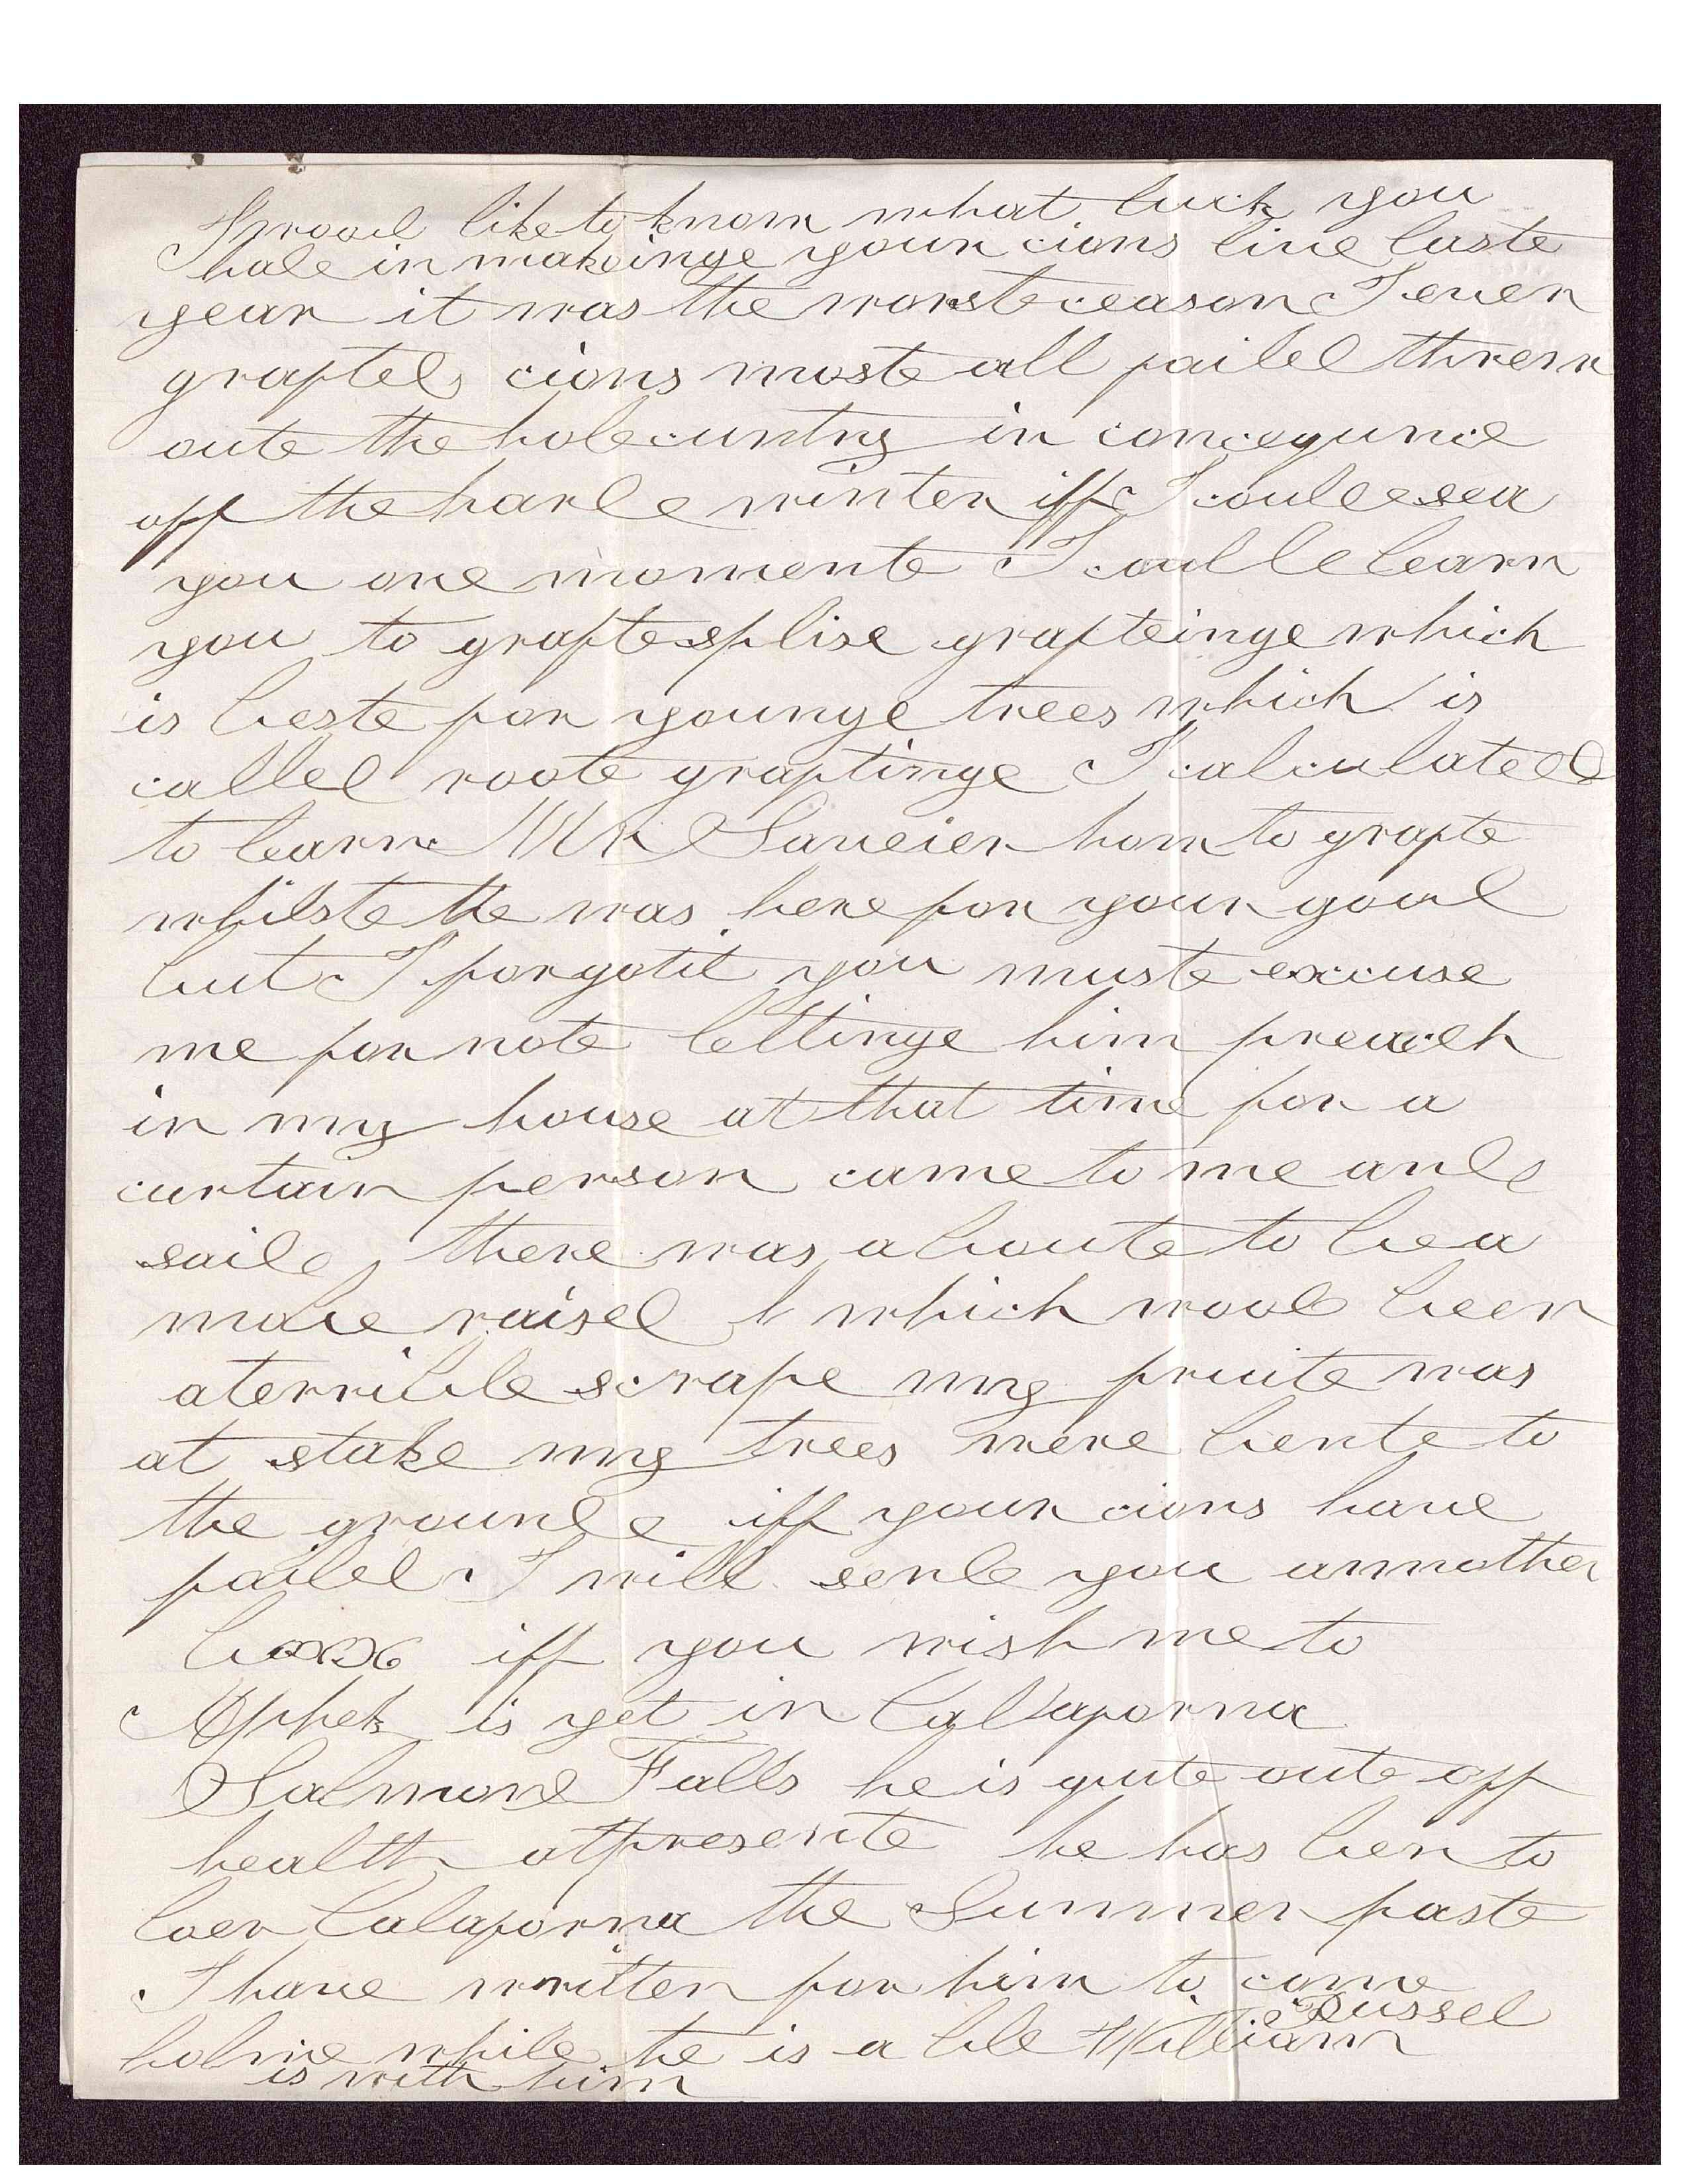 I wood like to know what luck you
hade in makeinge your cions live laste
year it was the worste ceason I ever
grafted cions moste all failed threw
oute the hole cuntry in concequnce
off the harde winter iff I coulde sea
you one momente I coulde learn
you to grafte splise grafteinge which
is beste for younge trees which is
called roote graftinge I calculated
to learn Mr Saucier how to grafte
whilste he was here for your good
but I forgotit you muste excuse
me for note lettinge him preach
in my house at that time for a
curtain person came to me and
said there was aboute to be a
mobe raised which wood been
aterrible scrape my fruite was
at stake my trees were bente to
the grounde iff your cions have
failed I will sende you annother
box iff you wish me to
is yet in Callaforna
Salmone Falls he is quite oute off
health atpresente he has ben to
loer Calaforna the Summer paste
I have written for him to come
holme while he is able William Russel
is with him